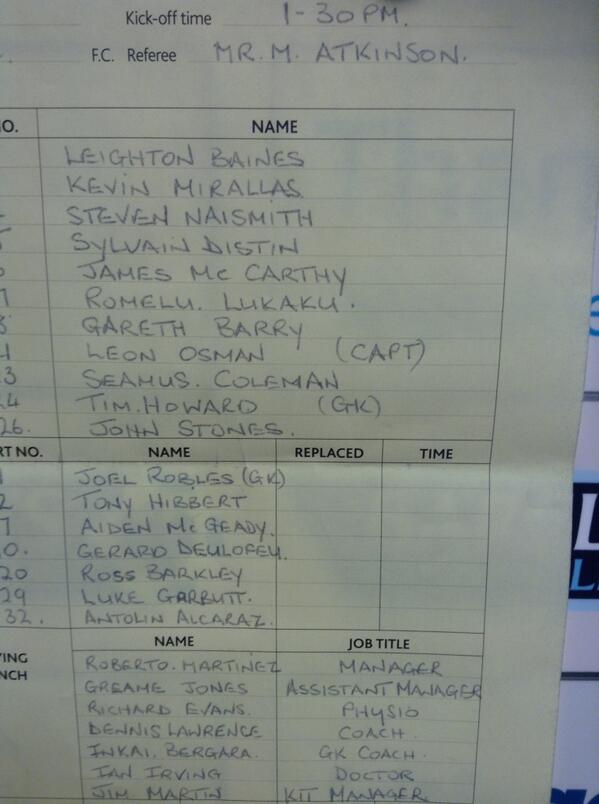 Kick-off time 1-30PM.
F.C. Referee MR. M. ATKINSON.
O. NAME
LEIGHTON BAINES
KEVIN MIRALLAS
STEVEN NAISMITH
SYLVAIN DISTIN
JAMES Mc CARTHY
7 ROMELU. LUKAKU.
8 GARETH BARRY
1 LEON OSMAN (CAPT)
3 SEAMUS. COLEMAN
24 TIM. HOWARD (GK)
26. JOHN STONES.
RT NO. NAME REPLACED TIME
1 JOEL ROBLES (GK)
2 TONY HIBBERT
7 AIDEN Mc GEADY.
0. GERARD DEULOFEU.
20 ROSS BARKLEY
29 LUKE GARBUTT.
32. ANTOLIN ALCARAZ.
YING
NCH
NAME JOB TITLE
ROBERTO. MARTINEZ MANAGER
GREAME JONES ASSISTANT MANAGER
RICHARD EVANS. PHYSIO
DENNIS LAWRENCE COACH.
INKAI. BERGARA. GK COACH.
IAN IRVING DOCTOR
JIM. MARTIN KIT MANAGER.